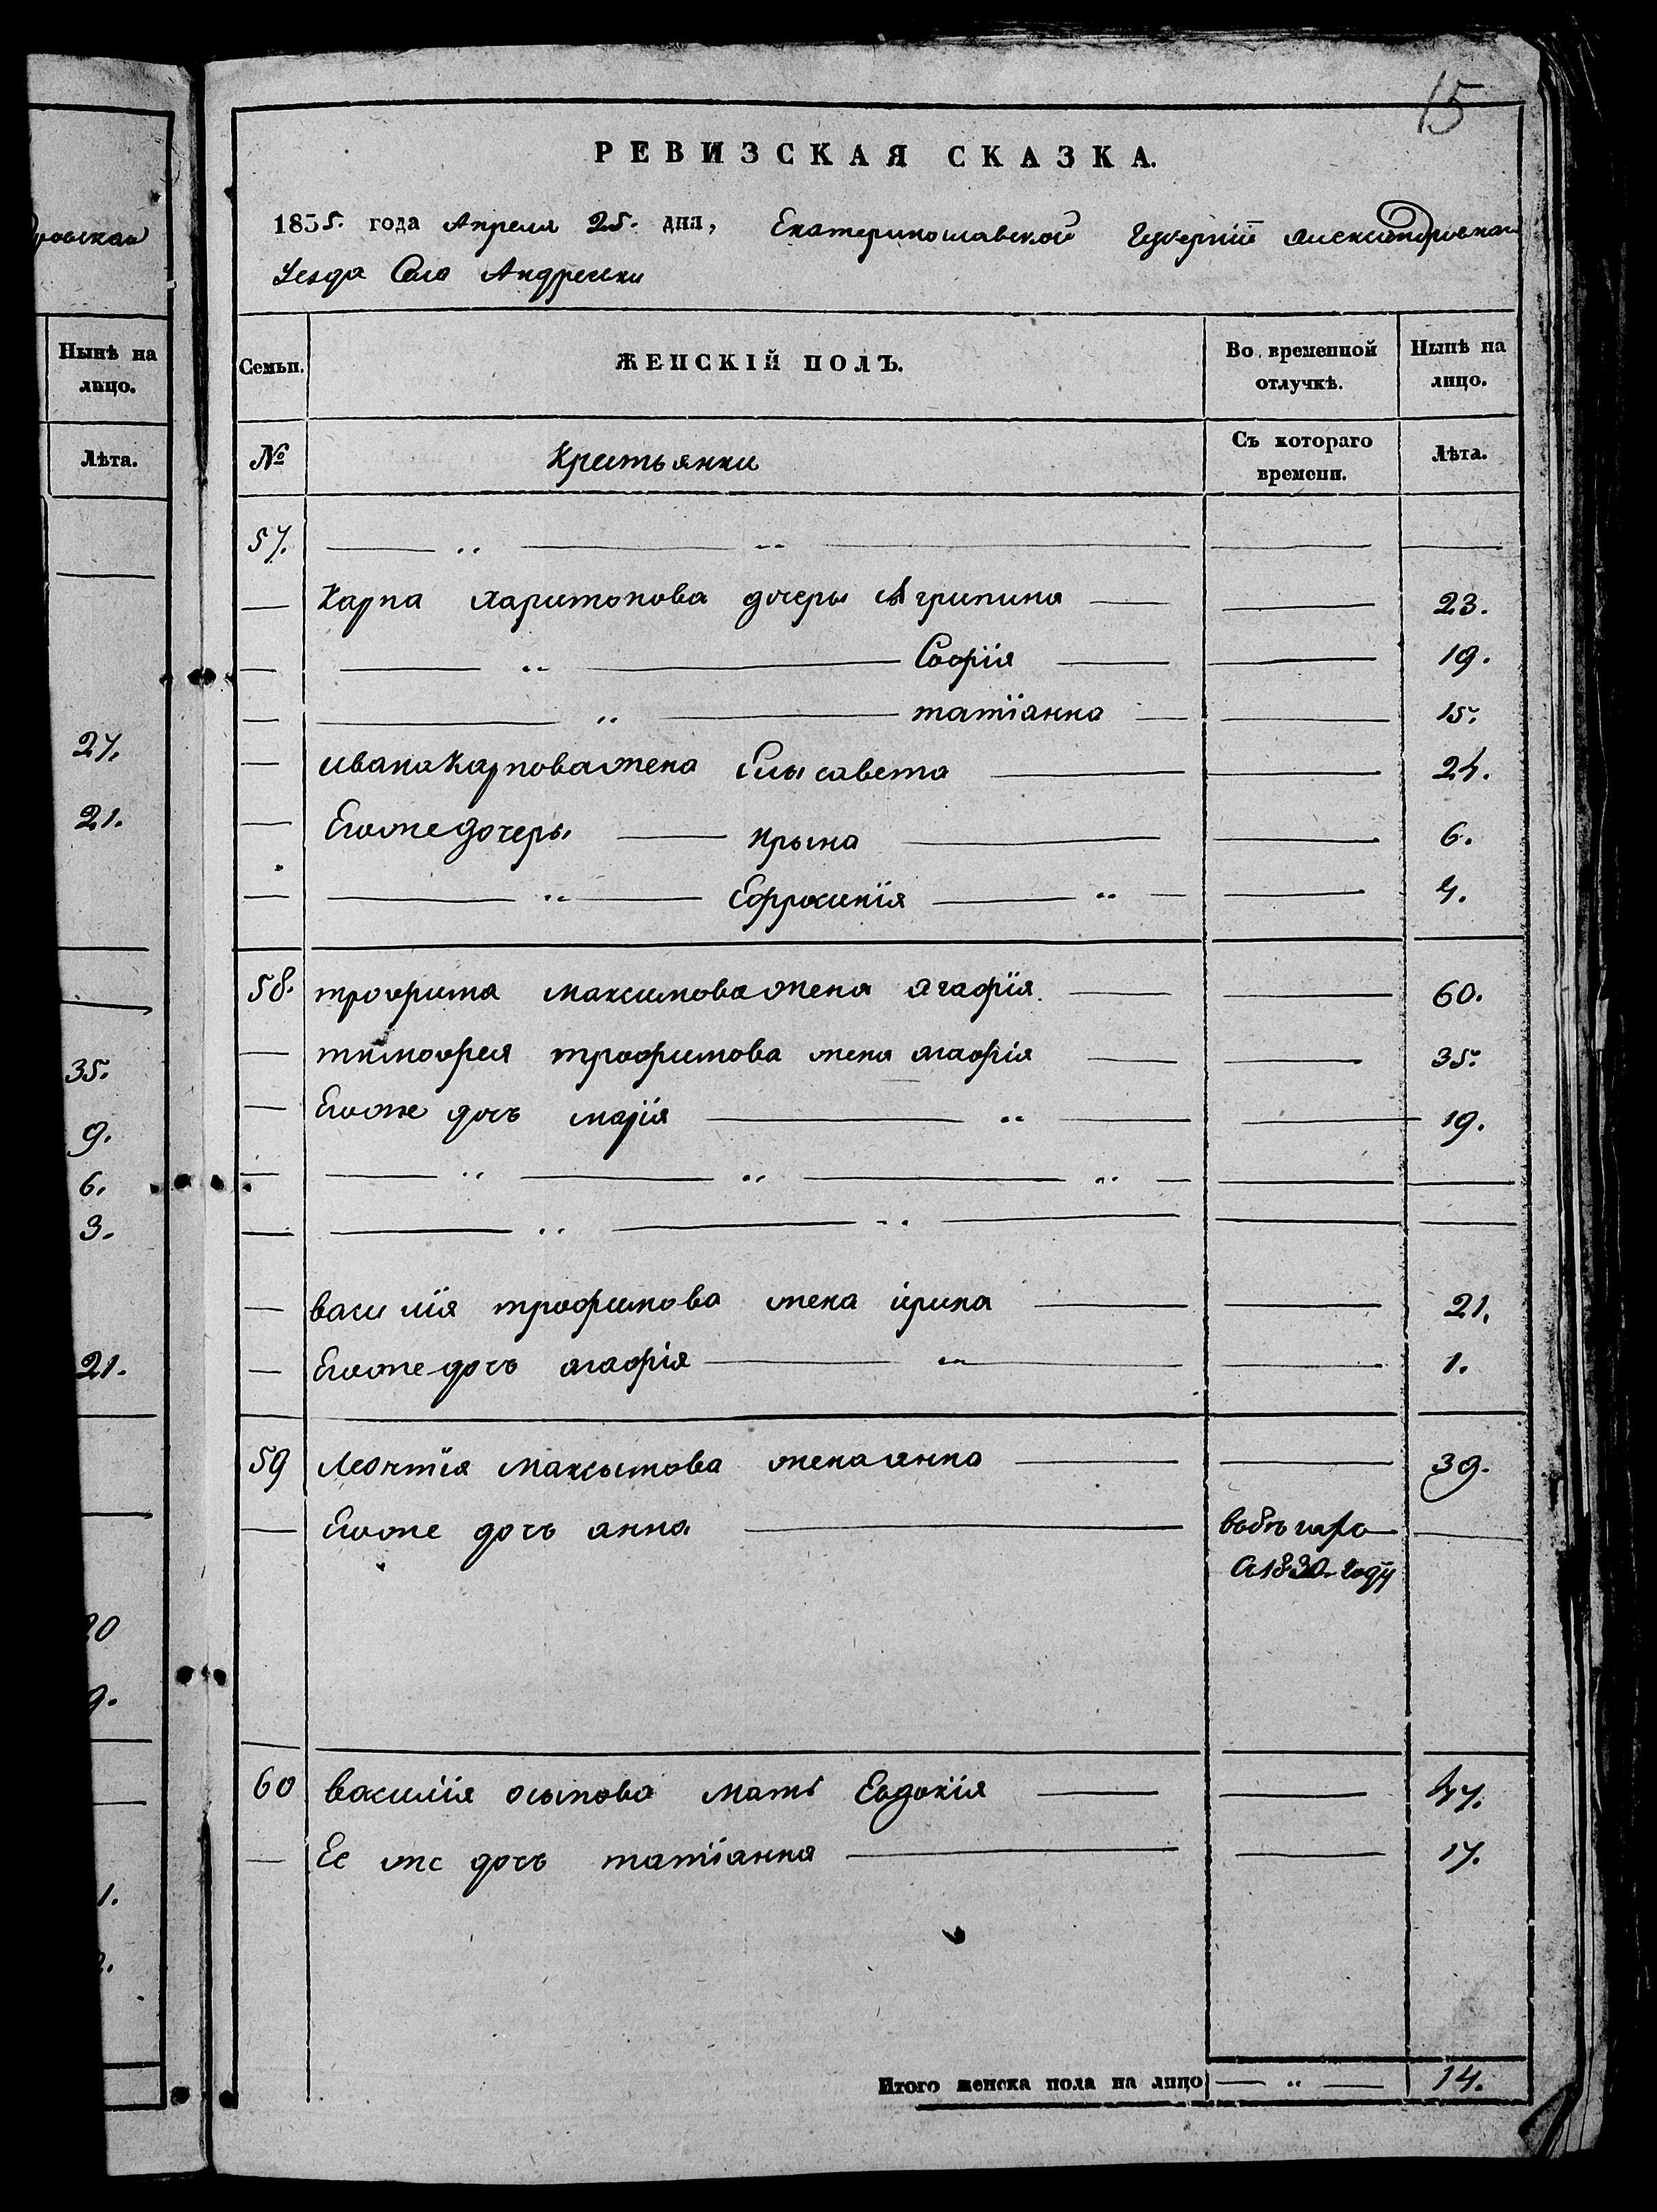 15
РЕВИЗСКАЯ СКАЗКА.
1835. года Апреля 25. дня, Екатеринославской Губерніи Александровскаго
Уезда Села Андреевки
Семьи. ЖЕНСКІЙ ПОЛЪ. Во временной отлучкѣ. Нынѣ на лицо.
№ Крестьянки Съ котораго времени. Лѣта.
57.
Карпа Харитонова дочеры Агрипина 23.
Софія 19.
татіанна 15.
ивана Карпова жена Елысавета 24.
Егоже дочеры Ирына 6.
Ефросинія 4.
58. трофима максимова жена агафія 60.
тимофея трофимова жена агафія 35.
Егоже дочь марія 19.
василія трофимова жена ірина 21.
Егоже дочь агафія 1.
59 Леонтія максымова жена анна 39.
Егоже дочь анна въбѣгахъ
с 1830 году
60 василія осыпова мать Евдокія 47.
Ее же дочь татіанна 17.
Итого женска пола на лицо 14.
Нынѣ на
лицо.
Лѣта.
27.
21.
35.
9.
6.
3.
21.